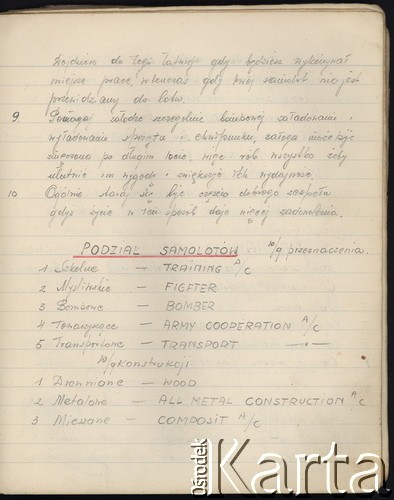 dojdziesz do tego łatwiej gdy będziesz wykańczał
miejsce pracy, wtenczas gdy twój samolot nie jest
przewidziany do lotu.
9. Pomagaj załodze szczególnie bombowej załadowaniu i
wyładowaniu sprzętu i ekwipunku, załoga może być
zmęczona po długim locie, więc rób wszystko żeby
ułatwić im wygodę i zwiększyć ich wydajność.
10 Ogólnie staraj się być częścią dobrego zespołu
gdyż życie w ten sposób daje więcej zadowolenia.
PODZIAŁ SAMOLOTÓW w/g przeznaczenia.
1 Szkolne — TRAINING A/C
2 Myśliwskie — FIGHTER
3 Bombowe — BOMBER
4 Towarzyszące — ARMY COOPERATION A/C
5 Transportowe — TRANSPORT —"—
w/g konstrukcji
1 Drewniane — WOOD
2 Metalowe — ALL METAL CONSTRUCTION A/C
3 Mieszane — COMPOSIT A/C
ośrodek
Karta